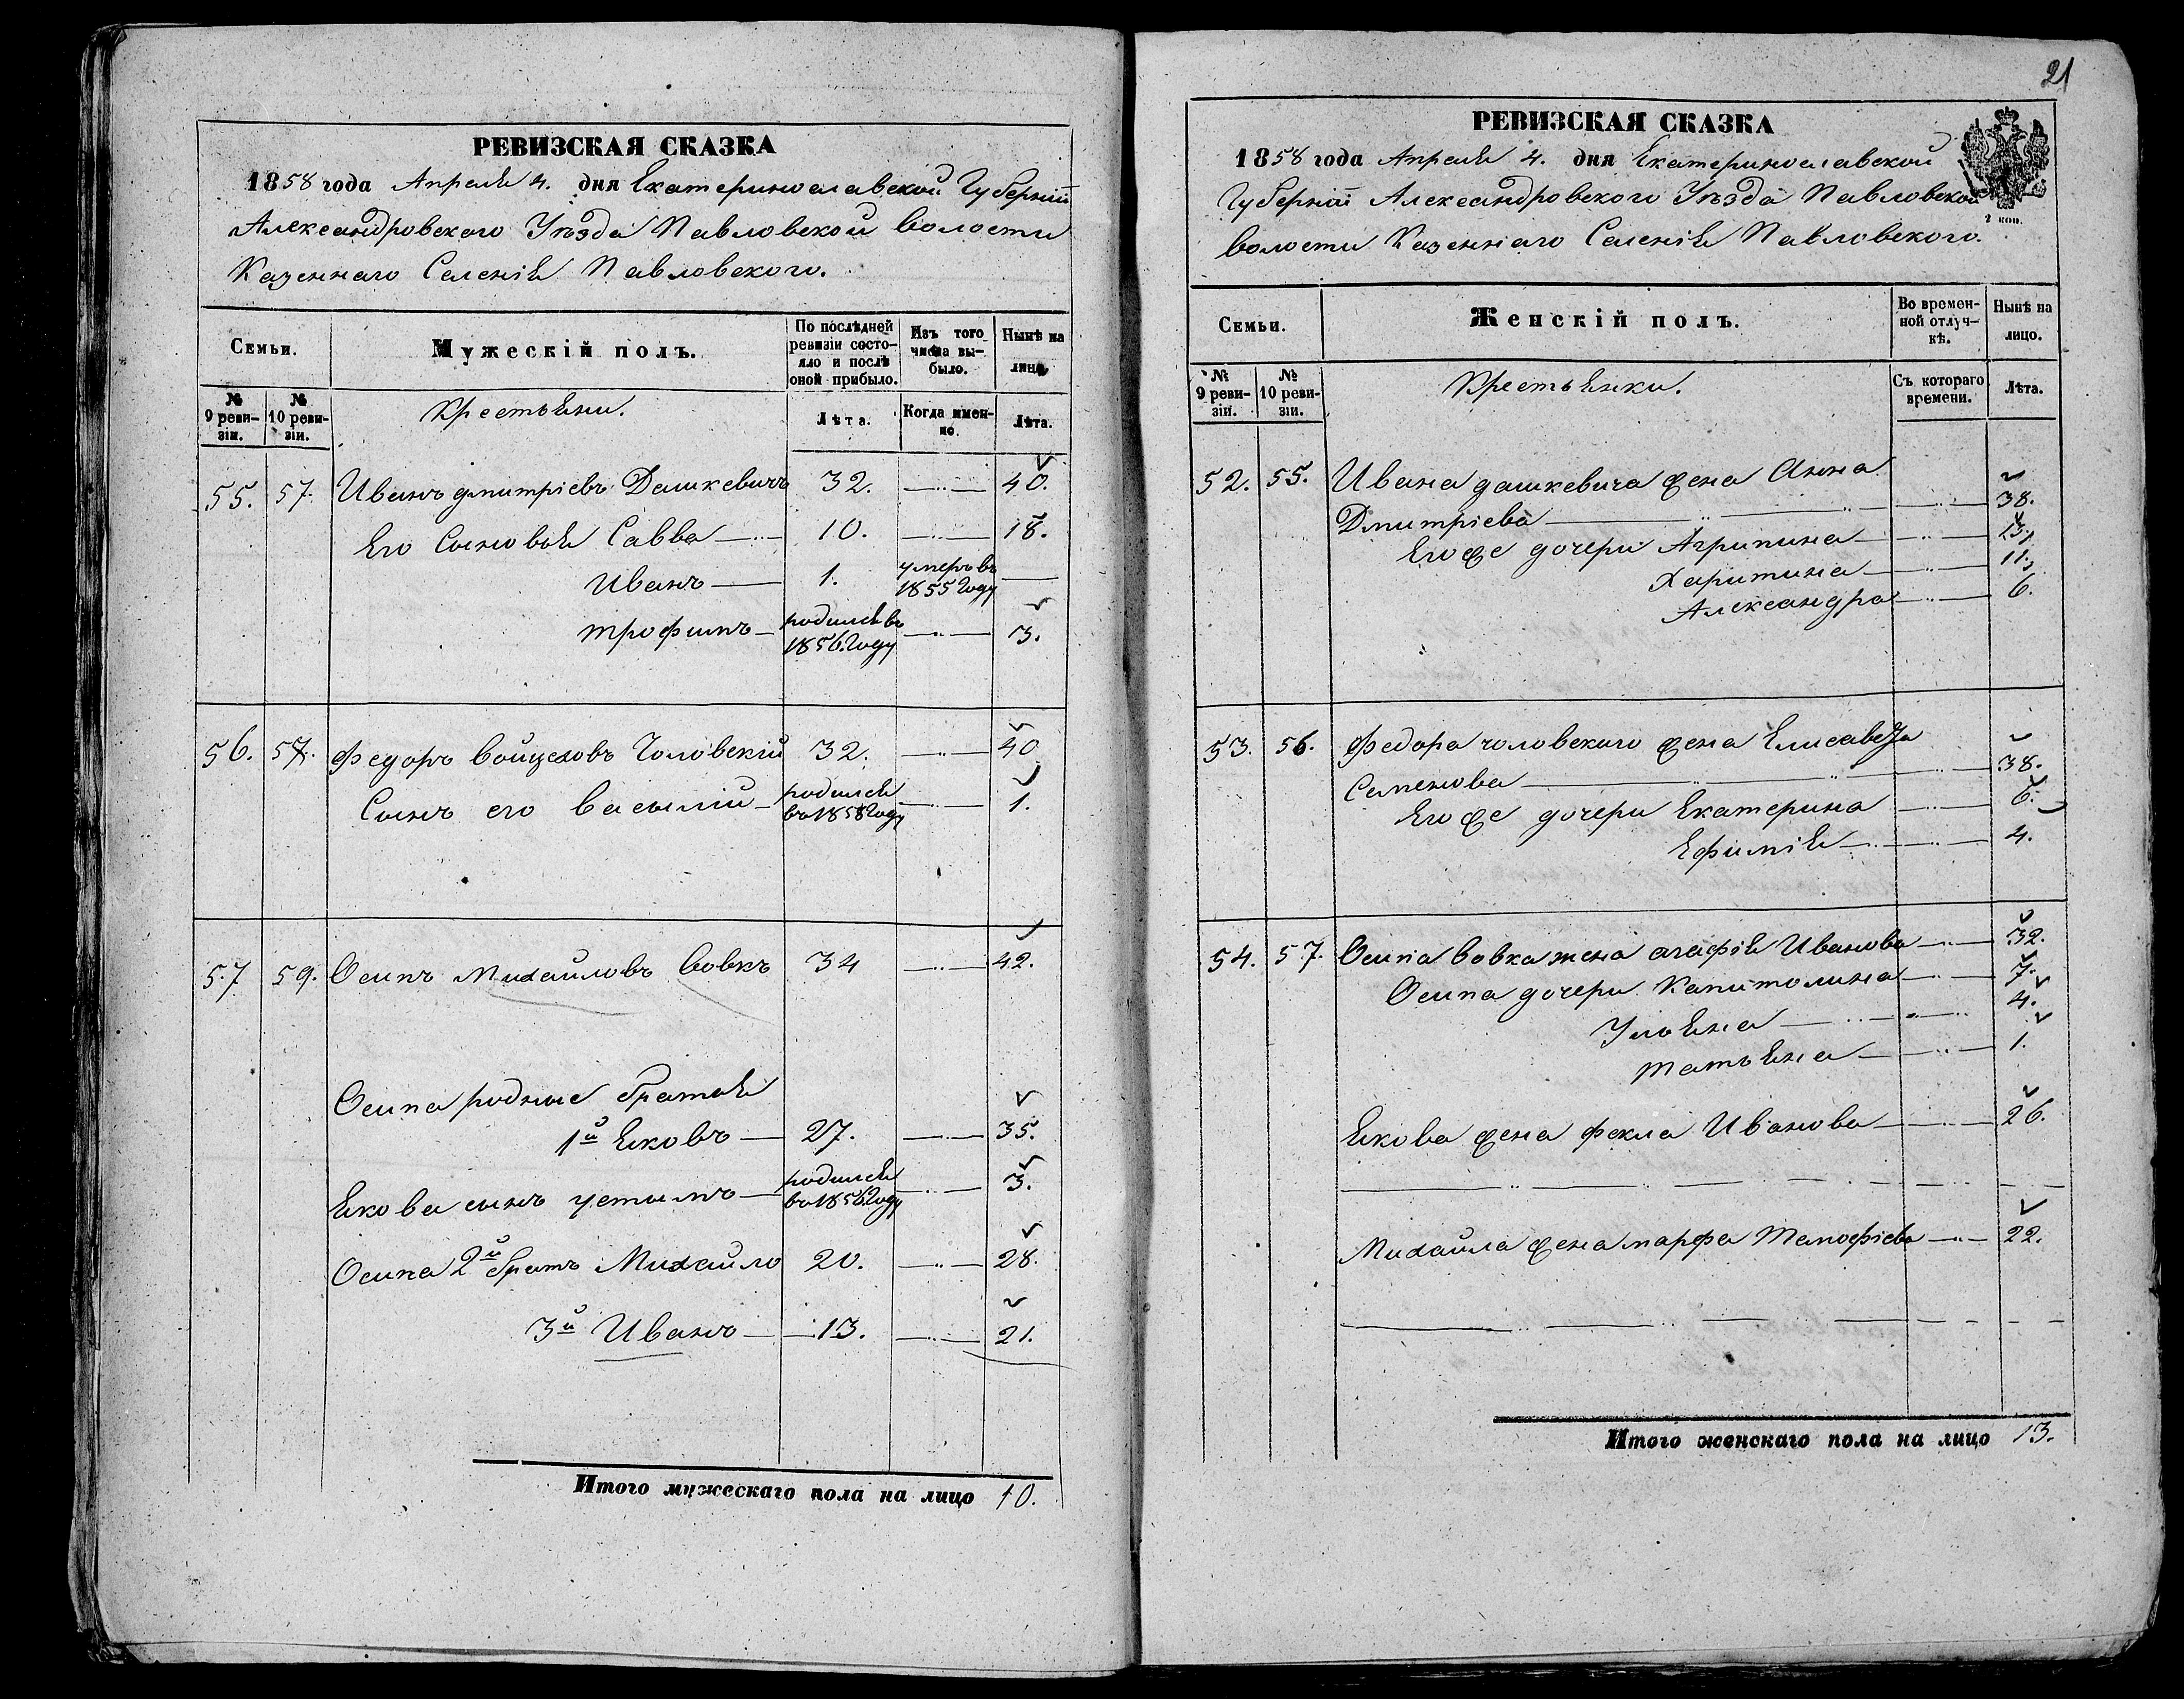 РЕВИЗСКАЯ СКАЗКА
1858 года Апреля 4. дня Екатеринославской Губерніи
Александровского Уѣзда Павловской волости
Казеннаго Селенія Павловского.
Семьи.
Мужескій полъ.
По послѣдней ревизіи состояло и послѣ оной прибыло.
Изъ того числа выбыло.
Нынѣ на лицо.
№ 9 ревизіи.
№ 10 ревизіи.
Крестьяни.
Лѣта.
Когда именно.
Лѣта.
55. 57. Иванъ дмитріевъ Дашкевичъ 32. 40.
Его Сыновья Савва 10. 18.
Иванъ 1. умеръ въ 1855 году
трофимъ родился въ 1856. году 3.
56. Федоръ войцеховъ Чоловскій 32. 40
Сынъ его василій родился въ 1858 году 1.
57 59. Осипъ Михайловъ Вовкъ 34 42.
Осипа родные братья
1й Яковъ 27. 35.
Якова сынъ устимъ родился въ 1856 году 3.
Осипа 2й братъ Михайло 20. 28.
3й Иванъ 13. 21.
Итого мужескаго пола на лицо 10.
21
РЕВИЗСКАЯ СКАЗКА
1858 года Апреля 4. дня Екатеринославской
Губерніи Александровского Уѣзда Павловской
волости Казеннаго Селенія Павловского.
коп.
Семьи.
Женскій полъ.
Во временной отлучкѣ.
Нынѣ на лицо.
№ 9 ревизіи.
№ 10 ревизіи.
Крестьянки.
Съ котораго времени.
Лѣта.
52. 55. Ивана дашкевича жена Анна
Дмитріева 38.
Его же дочери Агрипина 13.
Харитина 11.
Александра 6.
53. 56. Федора чоловского жена Елисавета
Семенова 38.
Его же дочери Екатерина 6.
Ефимія 4.
54. 57. Осипа вовка жена агафія Иванова 32.
Осипа дочери Капитолина 7.
Ульяна 4.
татьяна 1.
Якова жена фекла Иванова 26.
Михайла жена марфа 22.
Итого женскаго пола на лицо 13.